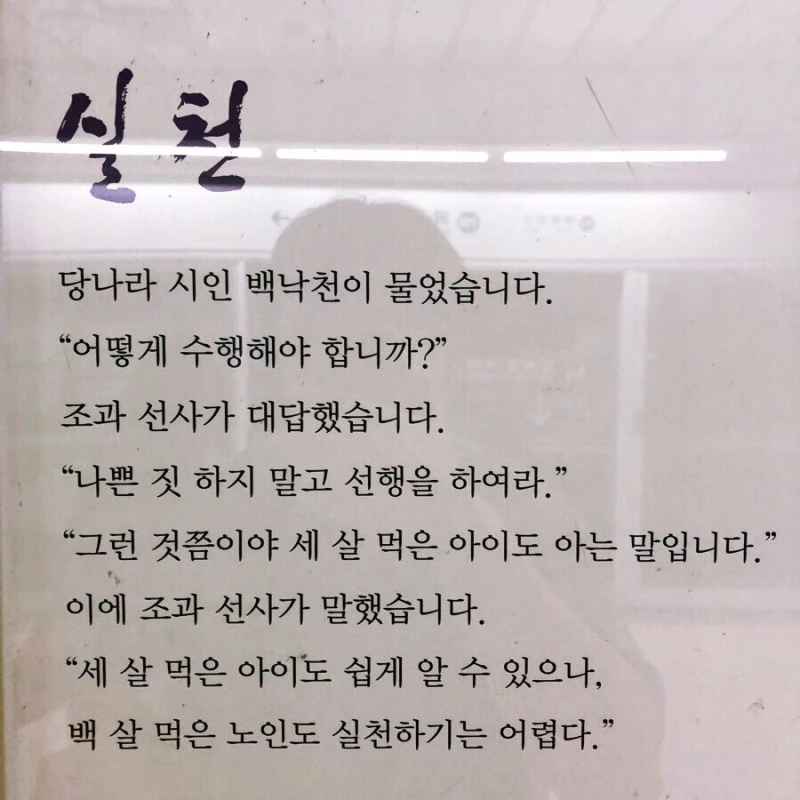 실천
당나라 시인 백낙천이 물었습니다.
“어떻게 수행해야 합니까?”
조과 선사가 대답했습니다.
“나쁜 짓 하지 말고 선행을 하여라.”
“그런 것쯤이야 세 살 먹은 아이도 아는 말입니다.”
이에 조과 선사가 말했습니다.
“세 살 먹은 아이도 쉽게 알 수 있으나,
백 살 먹은 노인도 실천하기는 어렵다.”